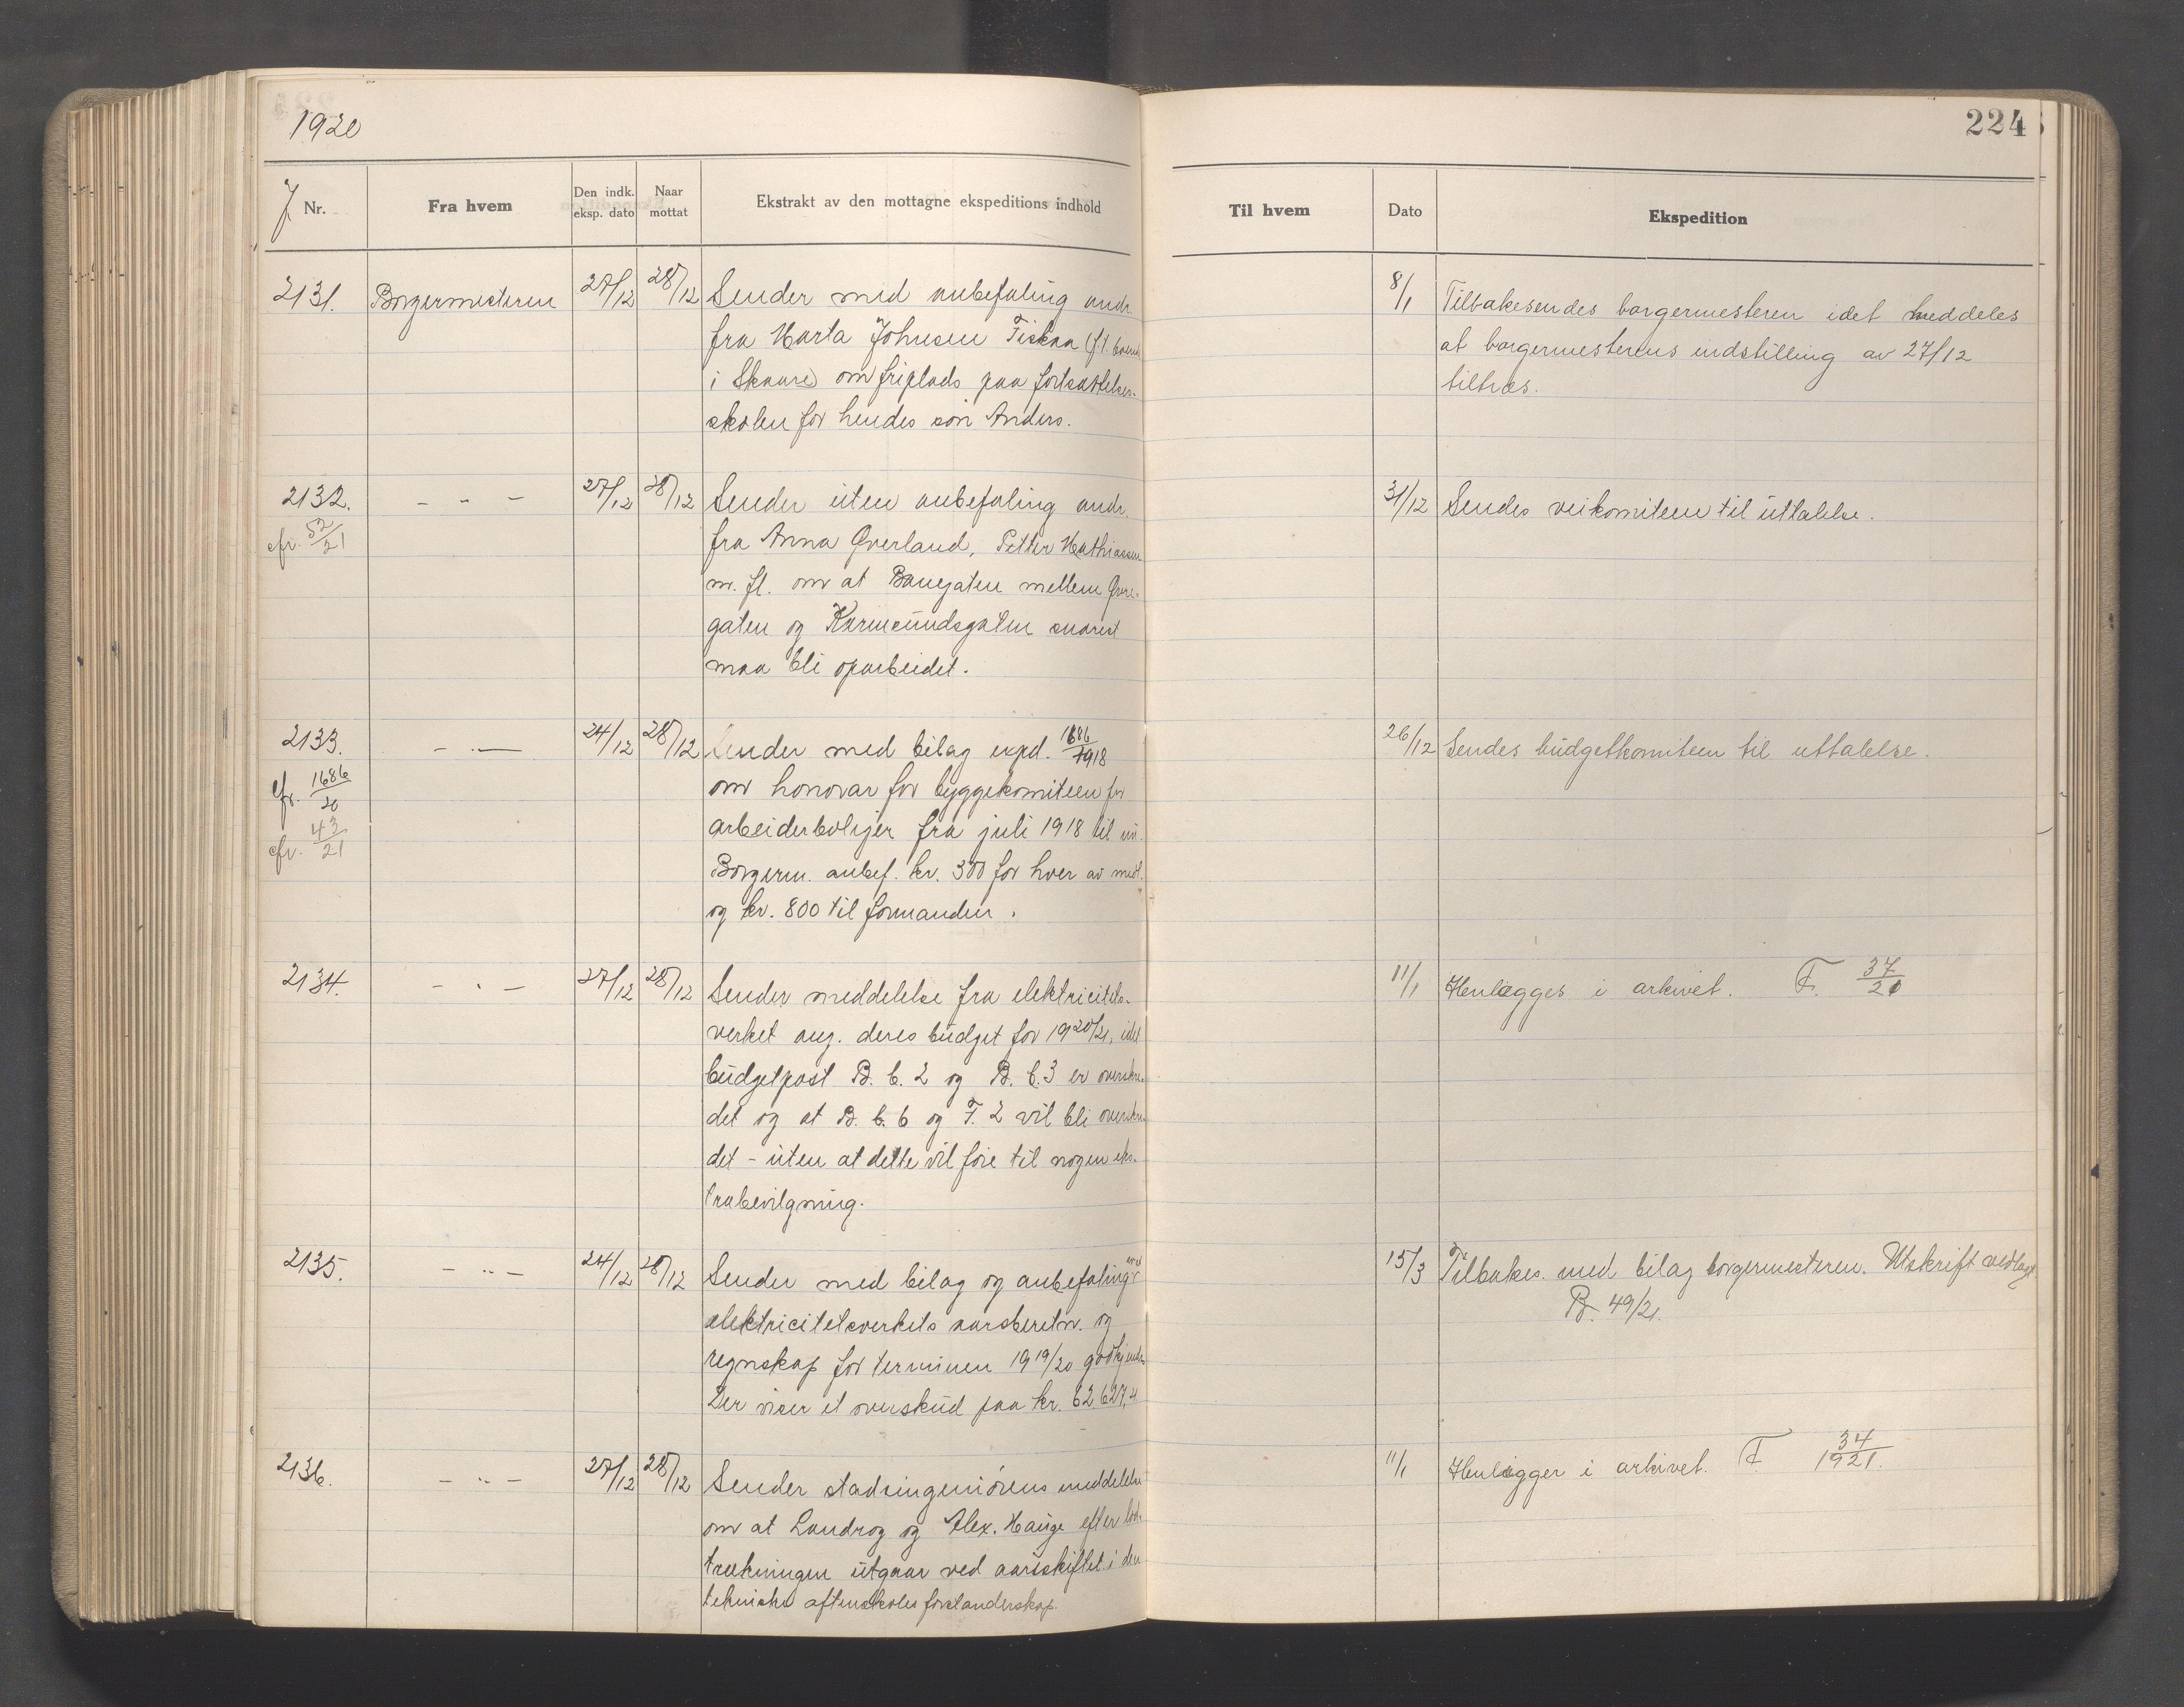 1920
224
J. Nr.
Fra hvem
Den indk. eksp. dato
Naar mottat
Ekstrakt av den mottagne ekspeditions indhold
Til hvem
Dato
Ekspedition
2131. Borgermesteren 27/12 28/12 Sender med anbefaling andr.
fra Marta Johnsen Fiskaa (f. t.
i Skaare) om friplads paa fortsættelses-
skolen for hendes søn Anders.
8/1 Tilbakesendes borgermesteren idet meddeles
at borgermesterens indstilling av 27/12
tiltræs.
2132. - " - 27/12 28/12 Sender uten anbefaling andr.
cfr. 52/21
fra Anna Qverland, Petter Mathiassen
m. fl. om at Banegaten mellem Øvre-
gaten og Karmsundsgaten snarest
maa bli oparbeidet.
31/12 Sendes veikomiteen til uttalelse.
2133. - " - 24/12 28/12 Sender med bilag expd. 1686/1918
cfr. 1686/20
cfr. 43/21
om honorar for byggekomiteen for
arbeiderboliger fra juli 1918 til nu.
Borgerm. anbef. kr. 300 for hver av medl.
og kr. 800 til formanden.
26/12 Sendes budgetkomiteen til uttalelse.
2134. - " - 27/12 28/12 Sender meddelelse fra elektricitets-
verket ang. deres budget for 1920/21, idet
budgetpost B. b. 2 og B. b. 3 er overskre-
det og at B. b. 6 og F. 2 vil bli overskre-
det - uten at dette vil føre til nogen eks-
trabevilgning.
11/1 Henlægges i arkivet. F. 37/20
2135. - " - 24/12 28/12 Sender med bilag og anbefaling
elektricitetsverkets aarsberetn. og
regnskap for terminen 1919/20 godkjendt.
Der viser et overskud paa kr. 62.627,4
15/3 Tilbakes. med bilag borgermesteren. Utskrift vedlagt
B. 49/21.
2136. - " - 27/12 28/12 Sender stadsingeniørens meddelelse
om at Landrog og Alex. Hauge efter lod-
trækningen utgaar ved aarsskiftet i den
tekniske aftenskoles forstanderskap.
11/1 Henlægger i arkivet. F. 34/1921.